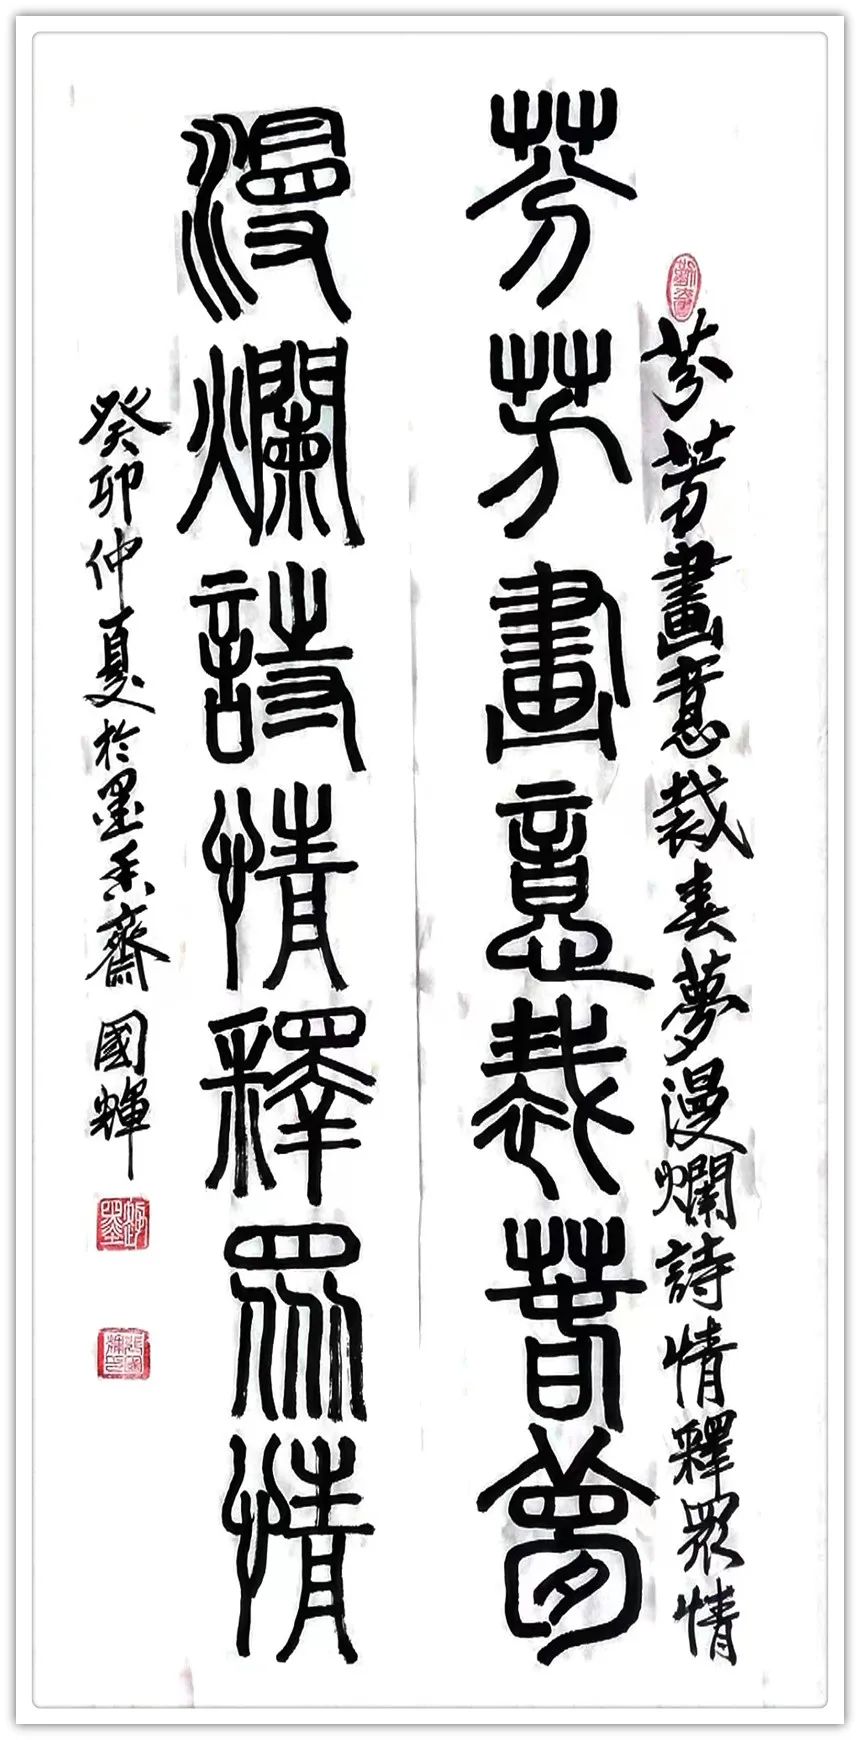 芬芳畫意裁春夢漫爛詩情釋眾情
芬芳畫意裁春夢
漫爛詩情釋眾情
癸卯仲夏於墨香齋國輝